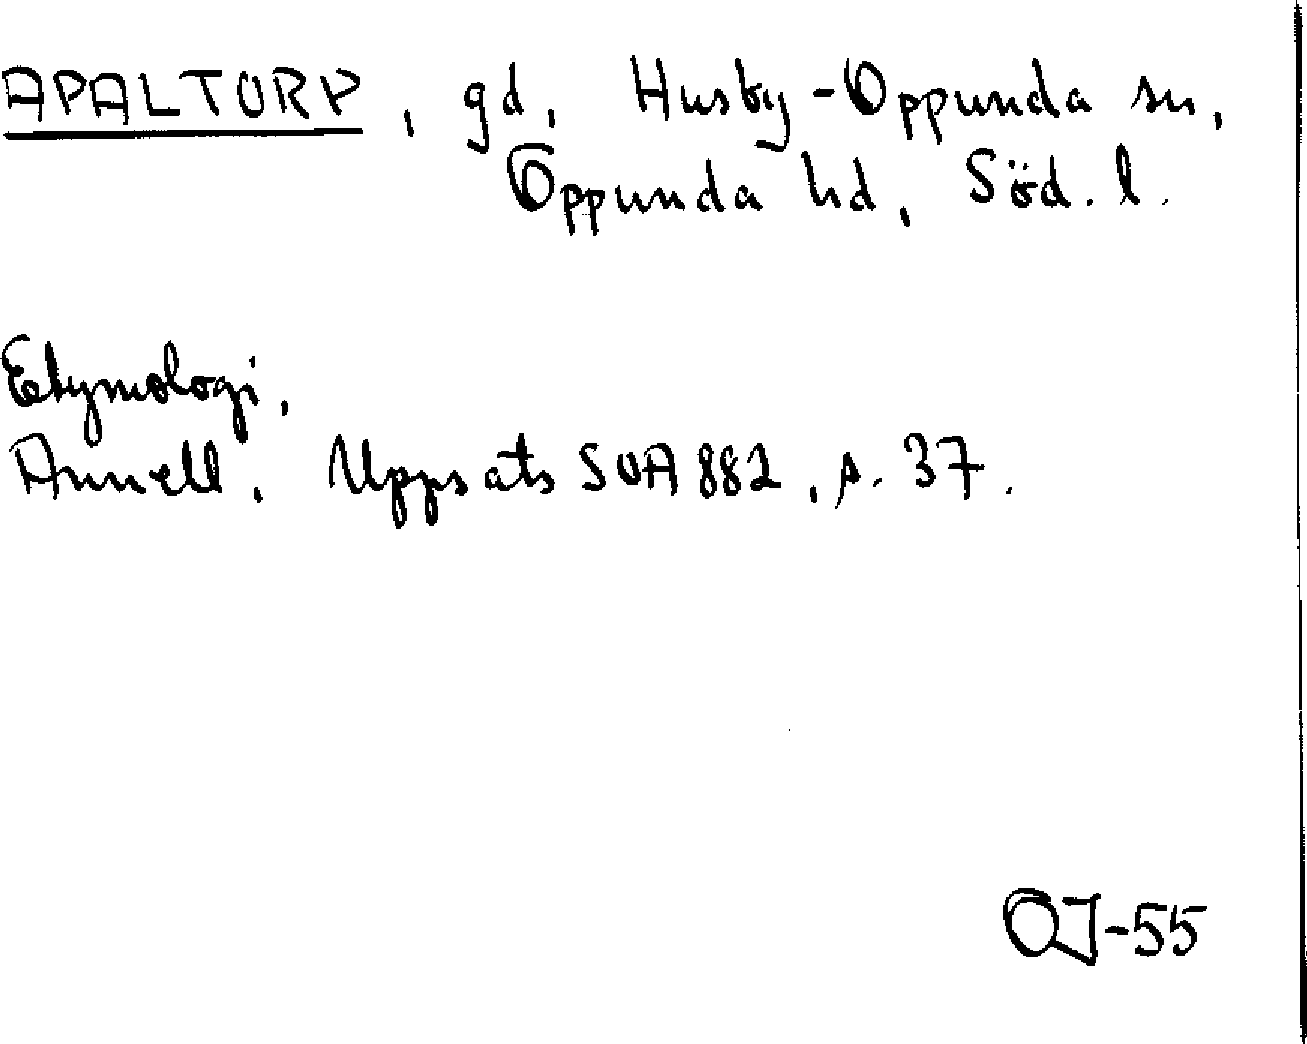 APALTORP, gd, Husby-Oppunda sn,
Oppunda hd, Söd. l.
Etymologi.
Annell, Uppsats SOA 882, s. 37.
OJ-55